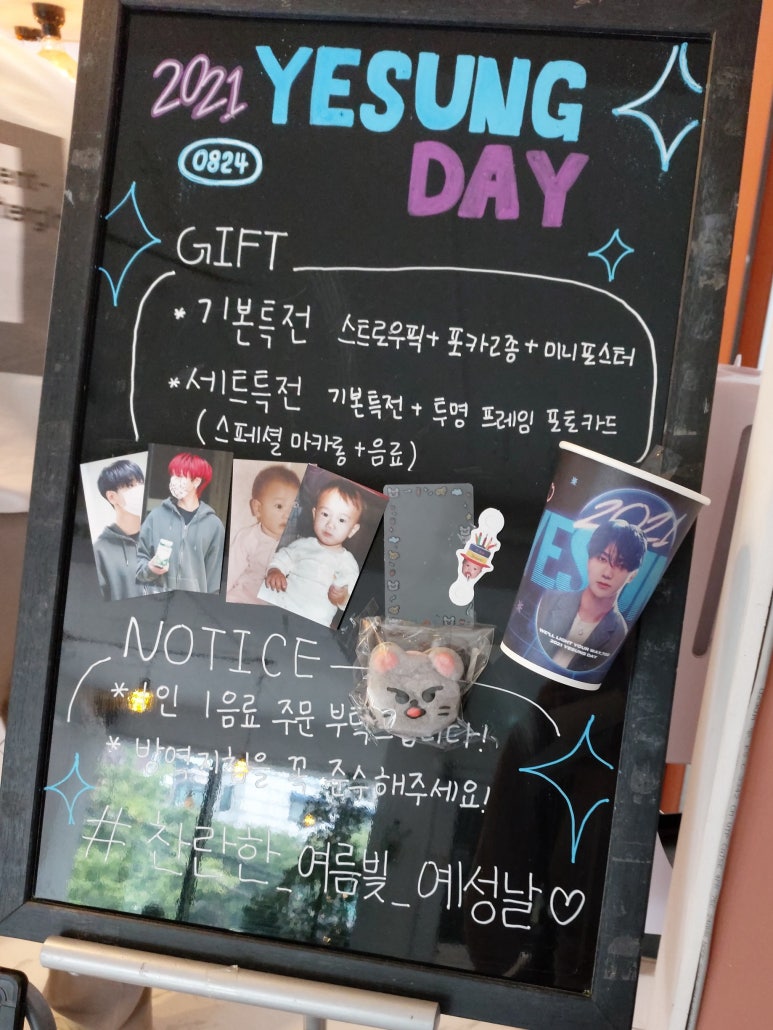 2021 YESUNG
DAY
0824
GIFT
* 기본특전 스트로우픽 + 포카2종 + 미니포스터
* 세트특전 기본특전 + 투명 프레임 포토카드
(스페셜 마카롱 + 음료)
2021
WE'LL LIGHT YOUR
2021 YESUNG DAY
NOTICE
* 1인 1음료 주문 부탁드립니다!
* 방역지침을 꼭 준수해주세요!
# 찬란한_여름빛_예성날♡